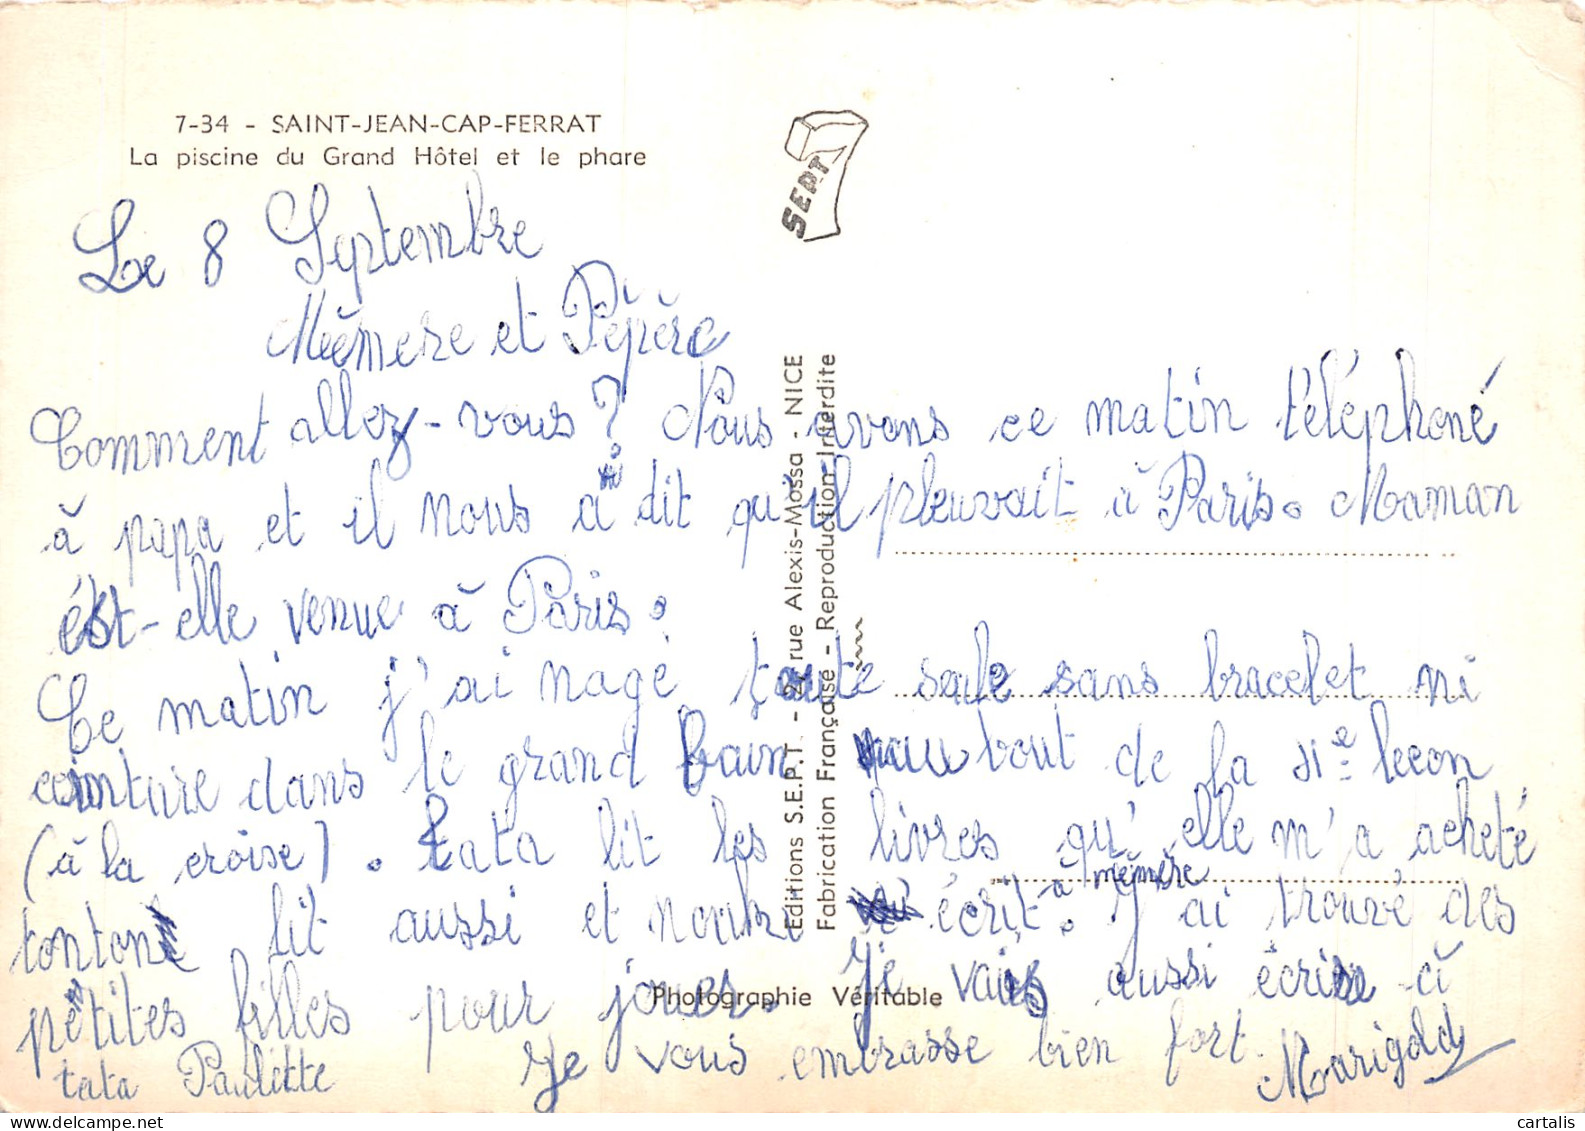 7-34 - SAINT-JEAN-CAP-FERRAT
La piscine du Grand Hôtel et le phare
SEPT 7
Le 8 Septembre
Mémere et Pépère
Comment allez-vous? Nous avons ce matin téléphoné
à papa et il nous a dit qu'il pleuvait à Paris. Maman
est-elle venue à Paris.
Ce matin j'ai nagé toute seule sans bracelet ni
ceinture dans le grand bain au bout de la 11e lecon
(à la croise). tata lit les livres qu'elle m'a acheté
tonton lit aussi et écrit à mémère. J'ai trouvé des
petites filles pour jouer. Je vais aussi écrire à
tata Paulette Je vous embrasse bien fort. Marigold
Editions S.E.P.T. - 2, rue Alexis-Mossa - NICE
Fabrication Française - Reproduction Interdite
Photographie Véritable
cartalis